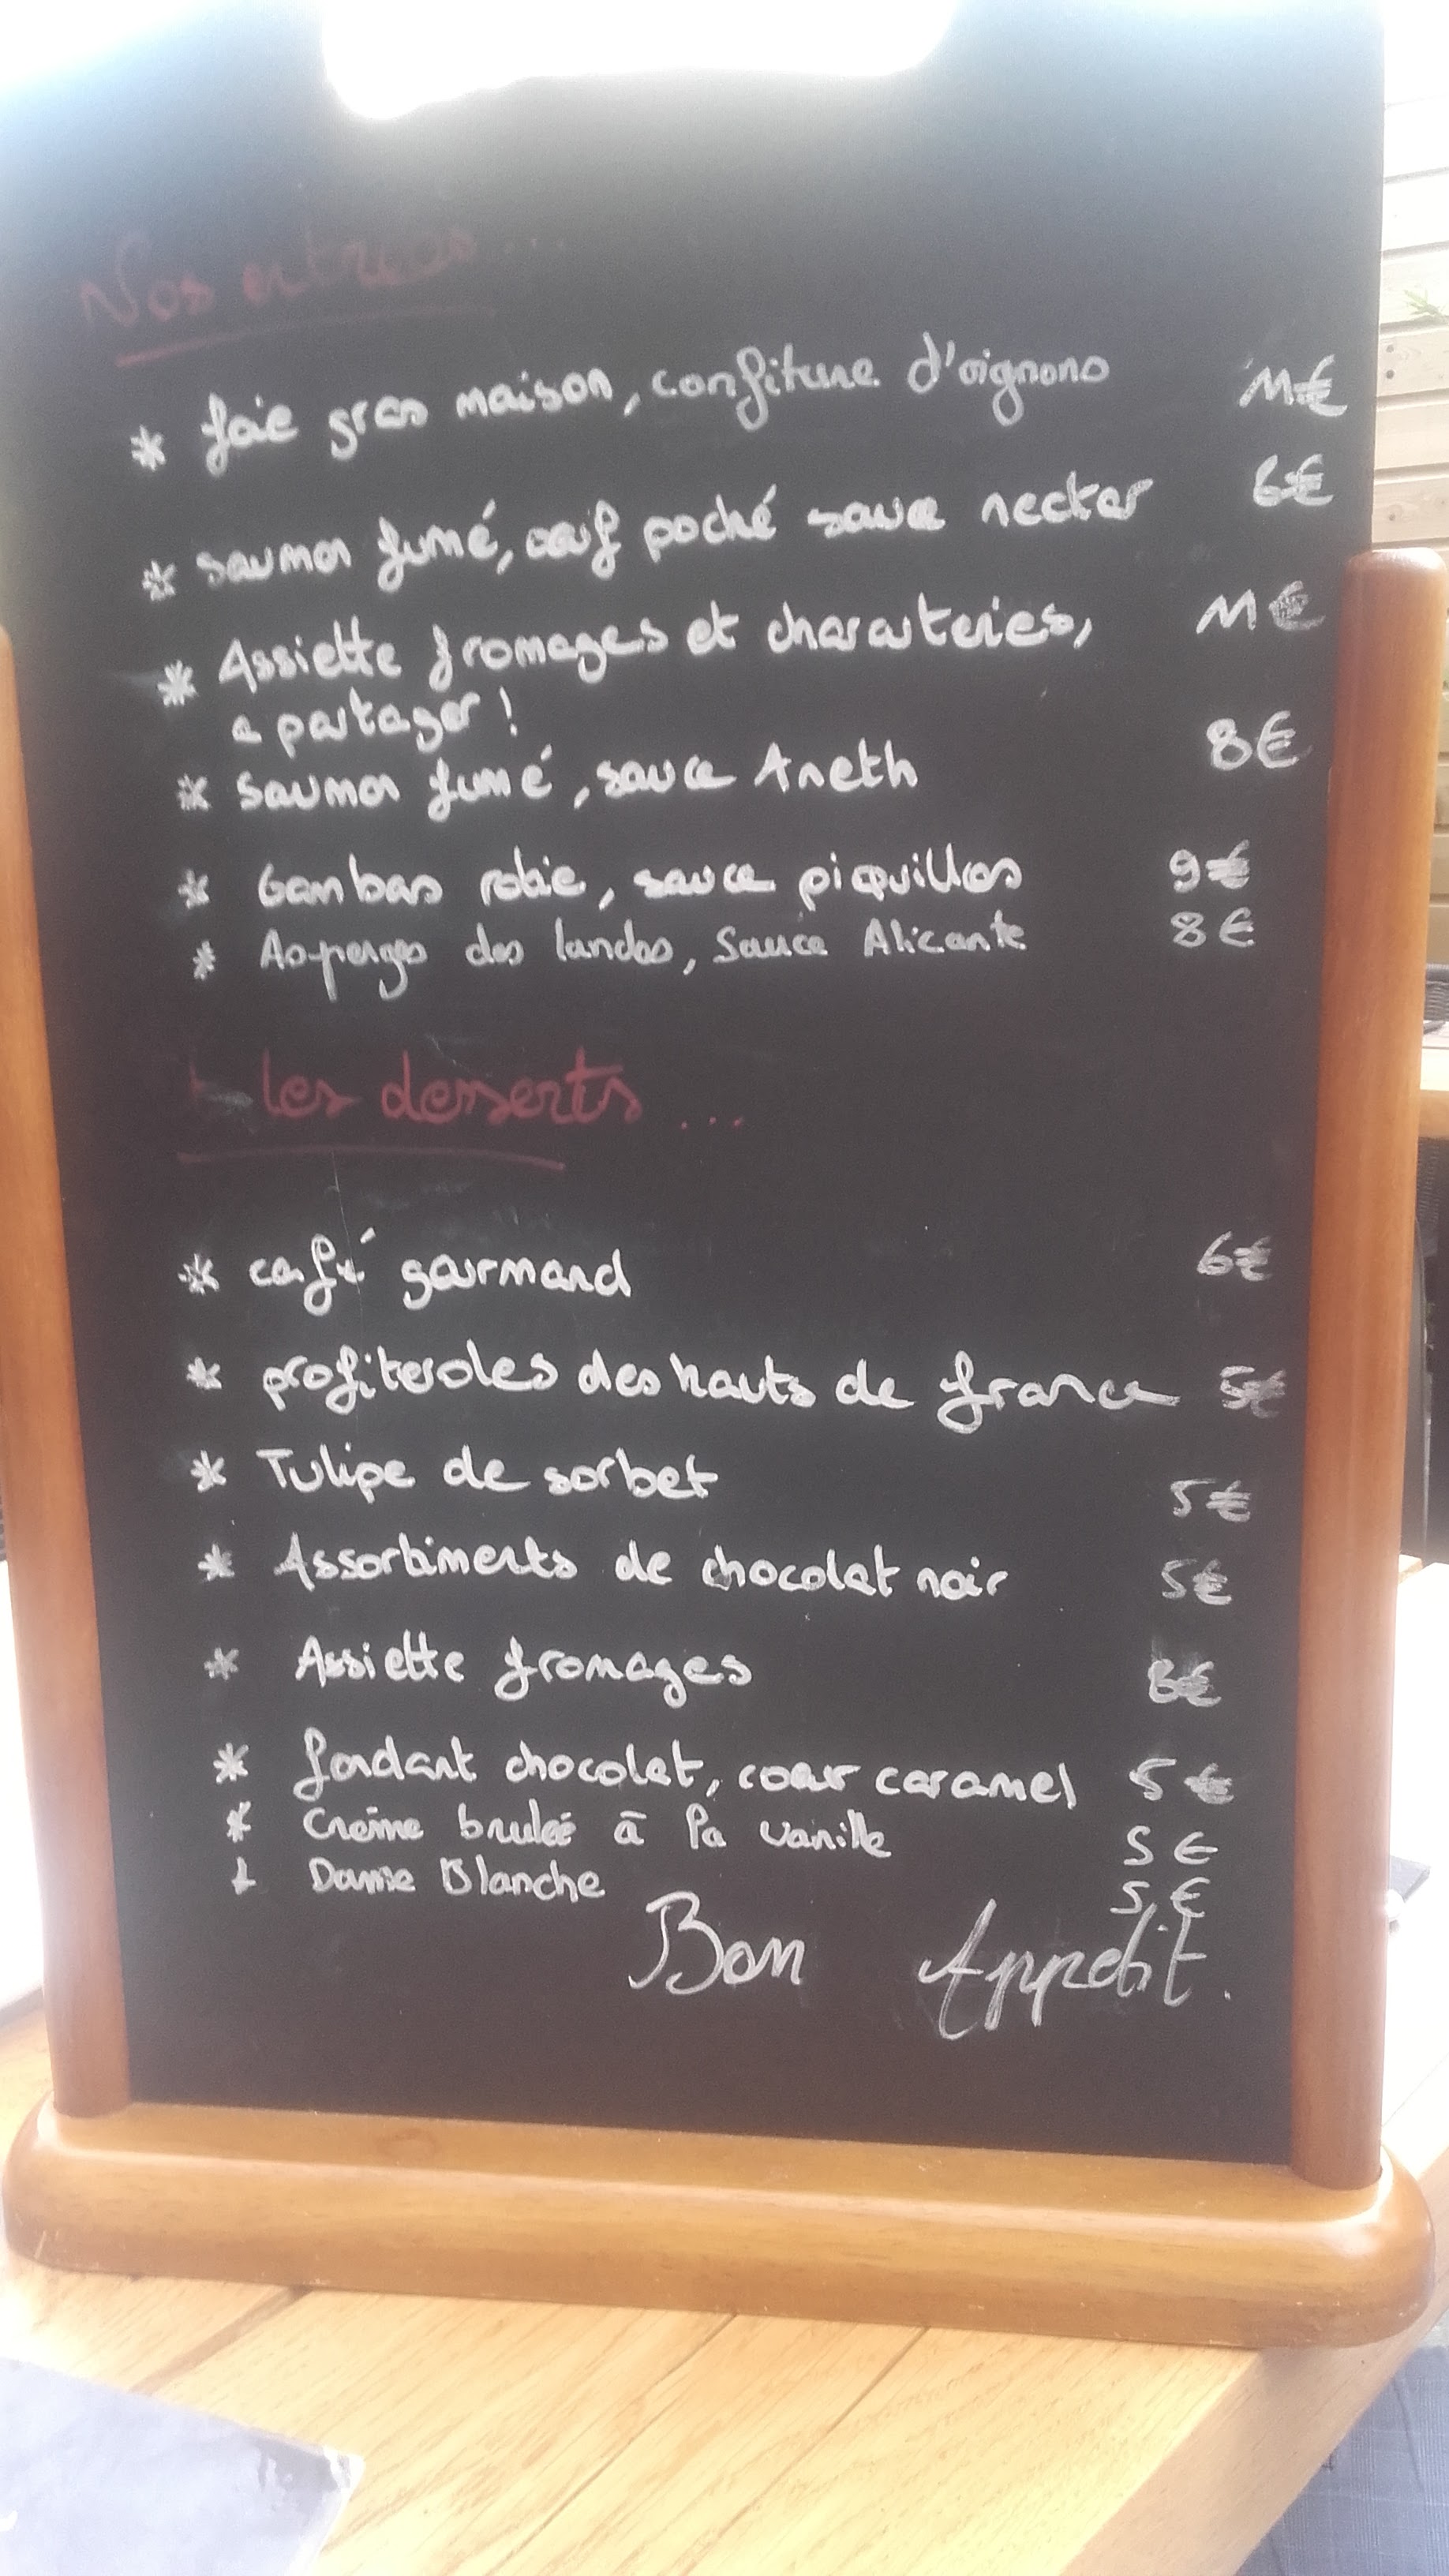 Nos entrées...
* foie gras maison, confiture d'oignons 11€
* saumon fumé, œuf poché sauce nectar 6€
* Assiette fromages et charcuteries, 11€
a partager !
* saumon fumé, sauce Aneth 8€
* Gambas rotie, sauce piquillos 9€
* Asperges des landes, Sauce Alicante 8€
les desserts ...
* café gourmand 6€
* profiteroles des hauts de france 5€
* Tulipe de sorbet 5€
* Assortiments de chocolat noir 5€
* Assiette fromages 8€
* fondant chocolat, cœur caramel 5€
* Crème brulée à la vanille 5€
* Dame Blanche 5€
Bon Appétit.